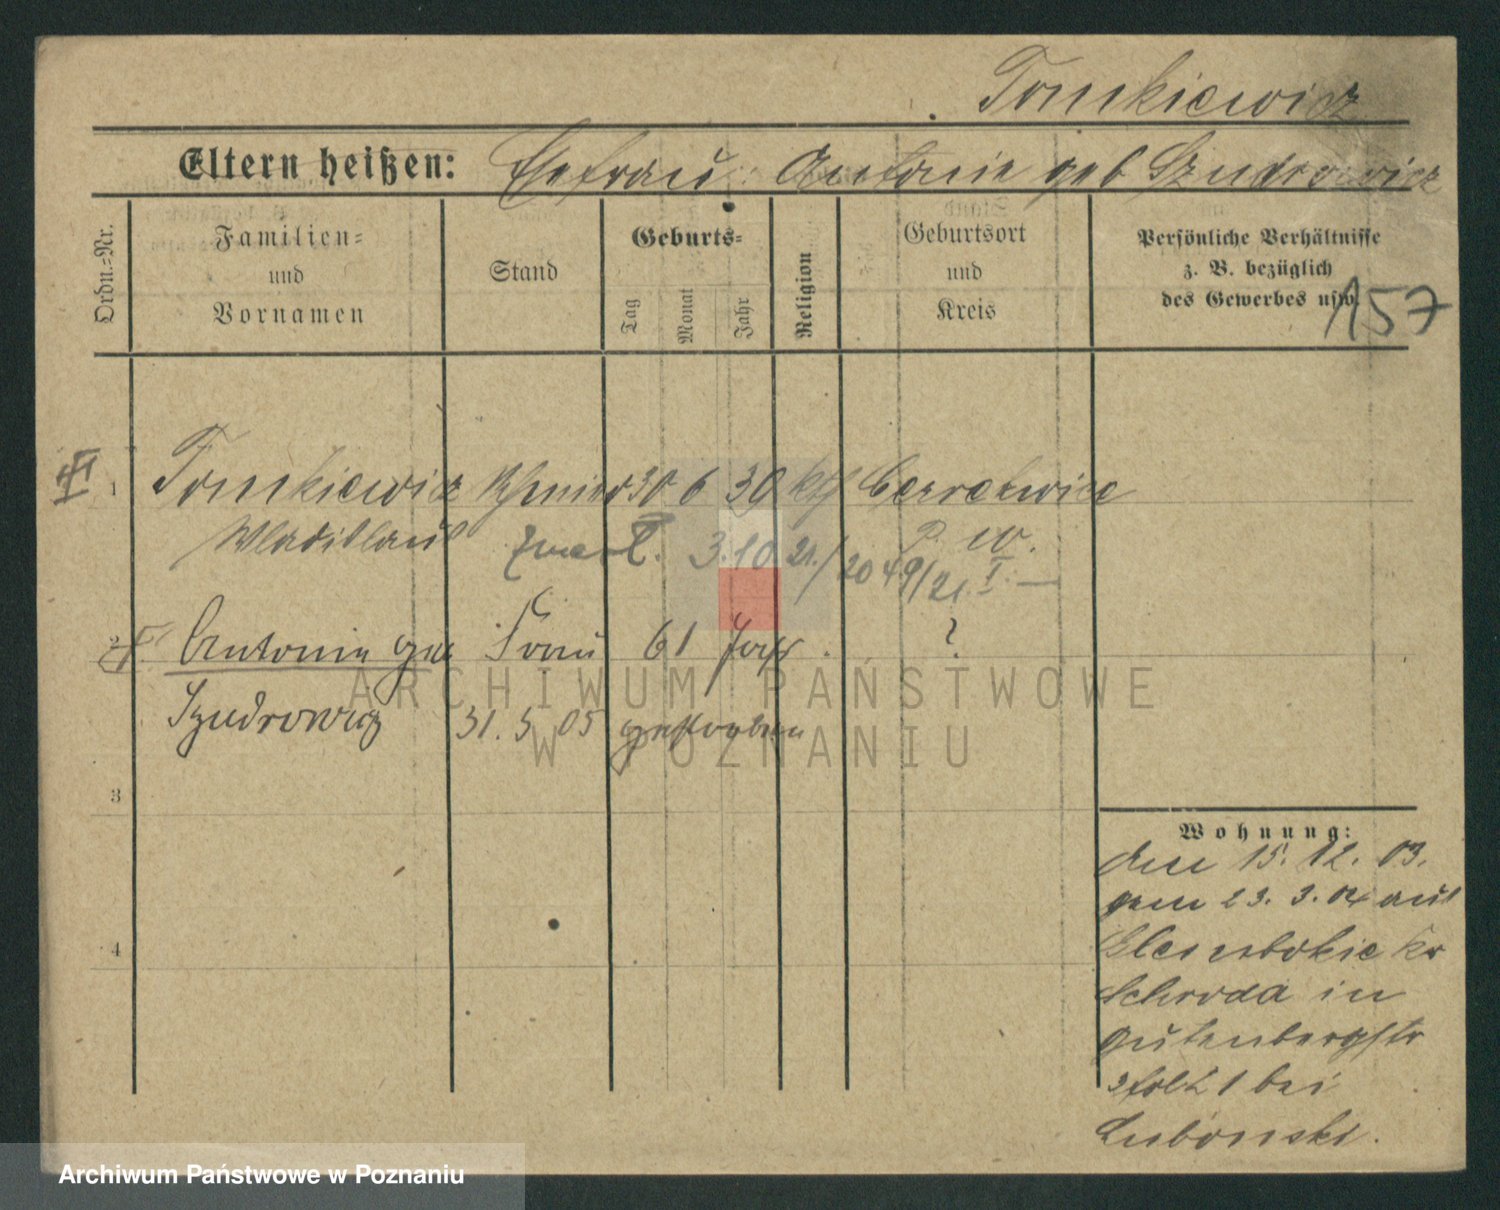 Tomkiewicz
Eltern heißen: Ehefrau: Antonie geb Szudrowicz
Ordn.=Nr.
Familien=
und
Vornamen
Stand
Geburts=
Tag
Monat
Jahr
Religion
Geburtsort
und
Kreis
Persönliche Verhältnisse
z. B. bezüglich
des Gewerbes usw.
157
1 Tomkiewicz 30 6 30 kth
Wladislaus
zmarł. 3.10.21./2049/21. I. —
P. W.
2 Antonie geb Frau 61 Jahr. ?
Szudrowicz 31. 5 05 gestorben
3
4
Wohnung:
den 15. 12. 03.
gem 23. 3. 04 aus
Kr
Schroda in
Gutenbergstr
1 bei
Lubonski.
ARCHIWUM PAŃSTWOWE
W POZNANIU
Archiwum Państwowe w Poznaniu